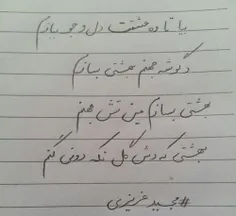 بیا تا ده مشتت دل و جو بیازم
د گوشه جهنم بهشتی بسازم
بهشتی بسازم مین تش جهنم
بهشتی که وش گل نکه دونی گنم
#مجید عزیزی